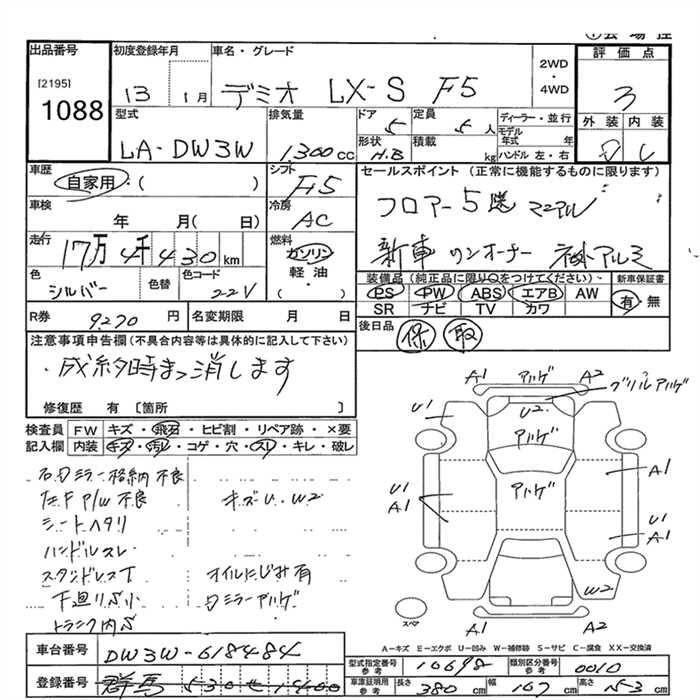 出品番号
[2195]
1088
初度登録年月
13 1月
車名・グレード
デミオ LX-S F5
2WD
・
4WD
評価点
3
型式
LA-DW3W
排気量
1,300cc
ドア
5
定員
5人
ディーラー・並行
モデル年式 年
ハンドル 左・右
形状
H.B
積載
kg
外装 内装
車歴
自家用・( )
シフト
F5
セールスポイント (正常に機能するものに限ります)
フロアー5速マニアル
新車ワンオーナー 社外アルミ
車検
年 月( 日)
冷房
AC
走行
17万4千430km
燃料
ガソリン
軽油・
( )
色
シルバー
色替
色コード
22V
装備品(純正品に限り〇をつけてください)
新車保証書
PS PW ABS エアB AW
SR ナビ TV カワ
有・無
R券
9270円
名変期限 月 日
後日品
保 取
注意事項申告欄(不具合内容等は具体的に記入して下さい)
・成約時まっ消します
修復歴 有 [箇所
検査員記入欄
FW キズ・飛石・ヒビ割・リペア跡・×要
内装 キズ・汚レ・コゲ・穴・スレ・キレ・破レ
右Dミラー格納不良
左F P/W不良
キズU.W2
シートヘタリ
ハンドルスレ
スタンドレスT
オイルにじみ有
下廻りS小
Dミラーアハゲ
トランク内S
A1 アハゲ A2 グリルアハゲ
U1 U2
アハゲ
A1
アハゲ
U1
A1
U1
A1
W2
A1 A2
スペア
A-キズ E-エクボ U-凹み W-補修跡 S-サビ C-腐食 XX-交換済
車台番号
DW3W-618484
登録番号
群馬530せ1400
型式指定番号
参考
10698
類別区分番号
参考
0010
車庫証明用
参考
長さ 380cm 幅 167cm 高さ 153cm